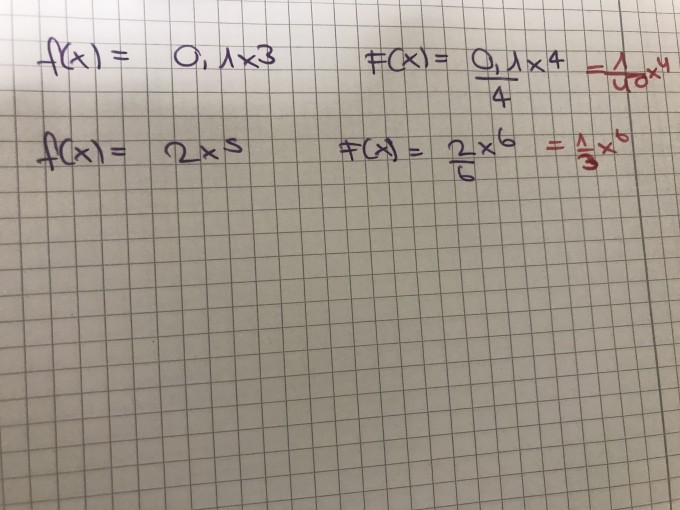 f(x) = 0,1x3 F(x) = 0,1/4 x4 = 1/40 x4
f(x) = 2x5 F(x) = 2/6 x6 = 1/3 x6